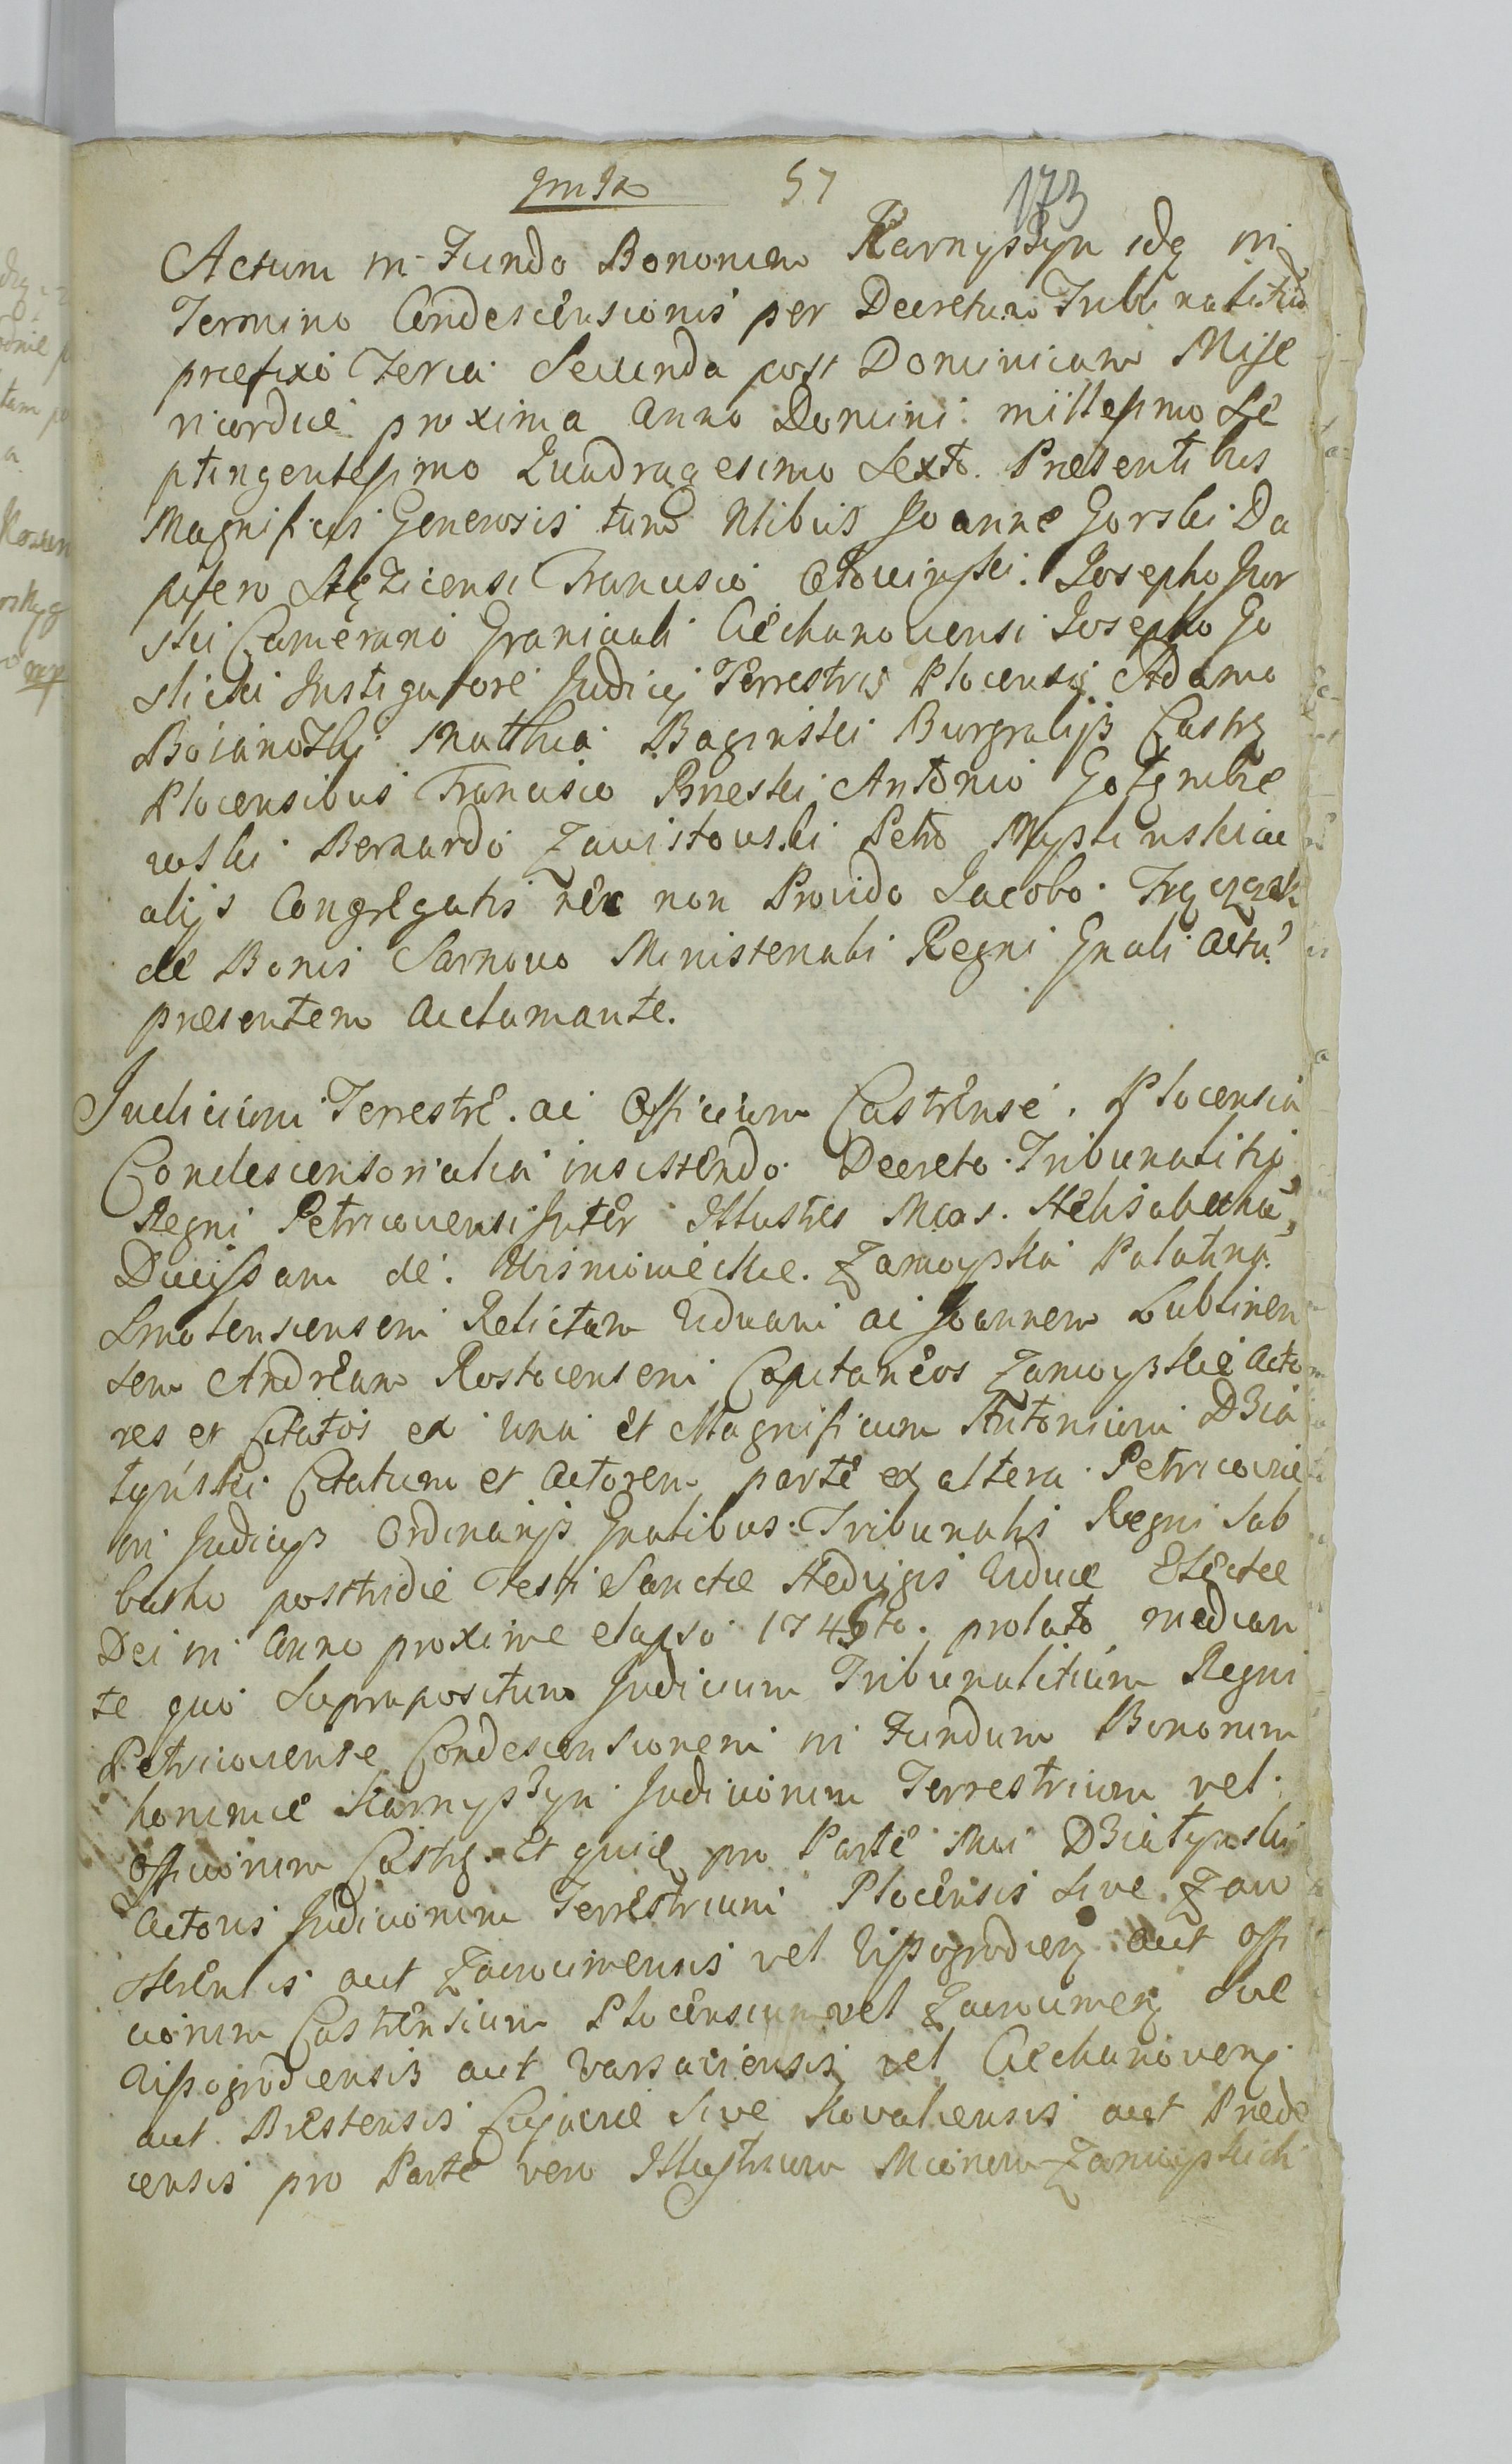 57
173
Actum in Fundo Bonorum Karnyszyn idq in
Termino Condescensionis per Decretum Tribunalitiũ
præfixo Feria Secunda post Dominicam Mise
ricordiæ proxima Anno Domini millesimo Se
ptingentesimo Quadragesimo Sexto. Præsentibus
Magnificis Generosis tum Nlibus Joanne Gorski Da
pifero Stęzicensi Francisco Josepho Gor
ski Camerario Graniciali Ciechanoviensi Josepho Go
slicki Instigatore Judicij Terrestris Plocensis Adamo
Matthia Baginski Burgrabijs Castrę
Plocensibus Francisco Brzeski Antonio Gołębie
wski Bernardo Zawistowski Petro ac
alijs Congregatis nec non Provido Jacobo
de Bonis Sarnowo Ministeriali Regni Gnali actũ
præsentem acclamante.
Judicium Terrestre ac Officium Castrense Plocensia
Condescensorialia insistendo Decreto Tribunalitio
Regni Petricovensi Inter Illustres Mcos. Helisabetham
Ducissam de Wisniowieckie Zamoyska Palatina
Smolenscensem Relictam Viduam ac Joannem Lublinen
sem Andream Rostocensem Capitaneos Zamoyskie Acto
res et Citatos ex una et Magnificum Antonium Dzia
łyński Citatum et Actorem parte ex altera Petricoviæ
in Judicijs Ordinarijs Gnalibus Tribunalis Regni Sab
batho postridie Festi Sanctæ Hedvigis Viduæ Electæ
Dei in Anno proxime elapso 1745to. prolato median
te quo Suprapositum Judicium Tribunalitium Regni
Petricovense Condescensionem in Fundum Bonorum
hominie Karnyszyn Judiciorum Terrestrium vel
Officiorum Castrę. Et quia pro Parte Mci Działynski
Actoris Judiciorum Terrestrium Plocensis sive Zaw
skrensis aut Zacrocimensis vel Vissogrodien aut Offi
ciorum Castrensium Plocensium vel Zacrocimen sive
Vissogrodiensis aut Varsaviensis vel Ciechanoven
aut Brestensis Cujaviæ sive Kovaliensis aut Præde
censis pro Parte vero Illustrium Mcorum Zamoyskich